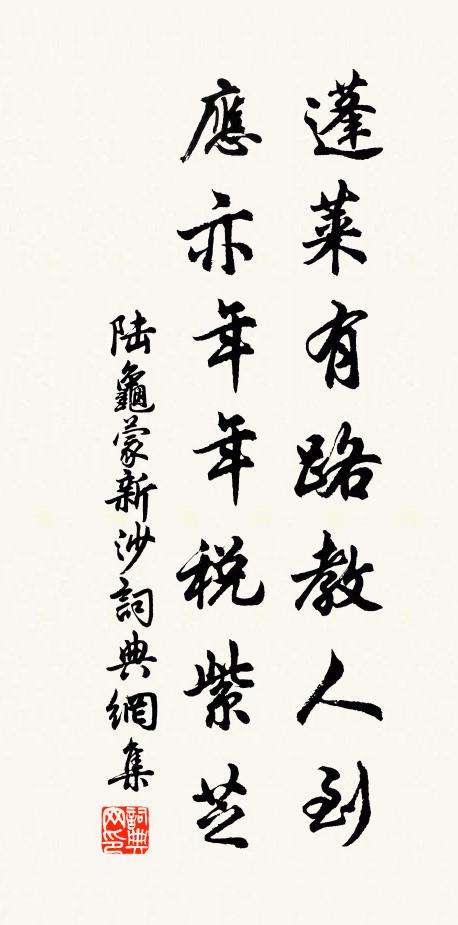 蓬莱有路教人到
應亦年年税紫芝
陆龜蒙新沙詞典網集
詞典网印